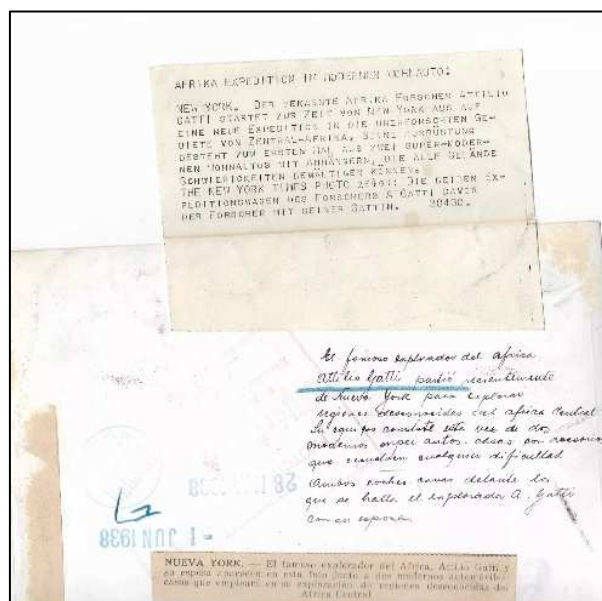 AFRIKA EXPEDITION IM MODERNEN WOHNAUTO:
NEW YORK. DER BEKANNTE AFRIKA FORSCHER ATTILIO
GATTI STARTET ZUR ZEIT VON NEW YORK AUS AUF
EINE NEUE EXPEDITION IN DIE UNERFORSCHTEN GE-
BIETE VON ZENTRAL-AFRIKA. SEINE AUSRÜSTUNG
BESTEHT ZUM ERSTEN MAL AUS ZWEI SUPER-MODER-
NEN WOHNAUTOS MIT ANHÄNGERN, DIE ALLE GELÄNDE
SCHWIERIGKEITEN BEWÄLTIGEN KÖNNEN.
THE NEW YORK TIMES PHOTO ZEIGT: DIE BEIDEN EX-
PEDITIONWAGEN DES FORSCHERS A GATTI DAVOR
DER FORSCHER MIT SEINER GATTIN. 28430.
El famoso explorador del africa
Attilio Gatti partió recientemente
de Nueva York para explorar
regiones desconocidas del africa Central
Su equipo consiste esta vez de dos
modernos super autos-casas con accesorios
que resuelven cualquier dificultad
Ambos coches casas delante los
que se halla el explorador A. Gatti
con su esposa.
28 1938
- 1 JUN 1938
NUEVA YORK. — El famoso explorador del Africa, Attilio Gatti y
su esposa aparecen en esta foto junto a dos modernos automóviles
casas que empleará en su exploración de regiones desconocidas del
Africa Central